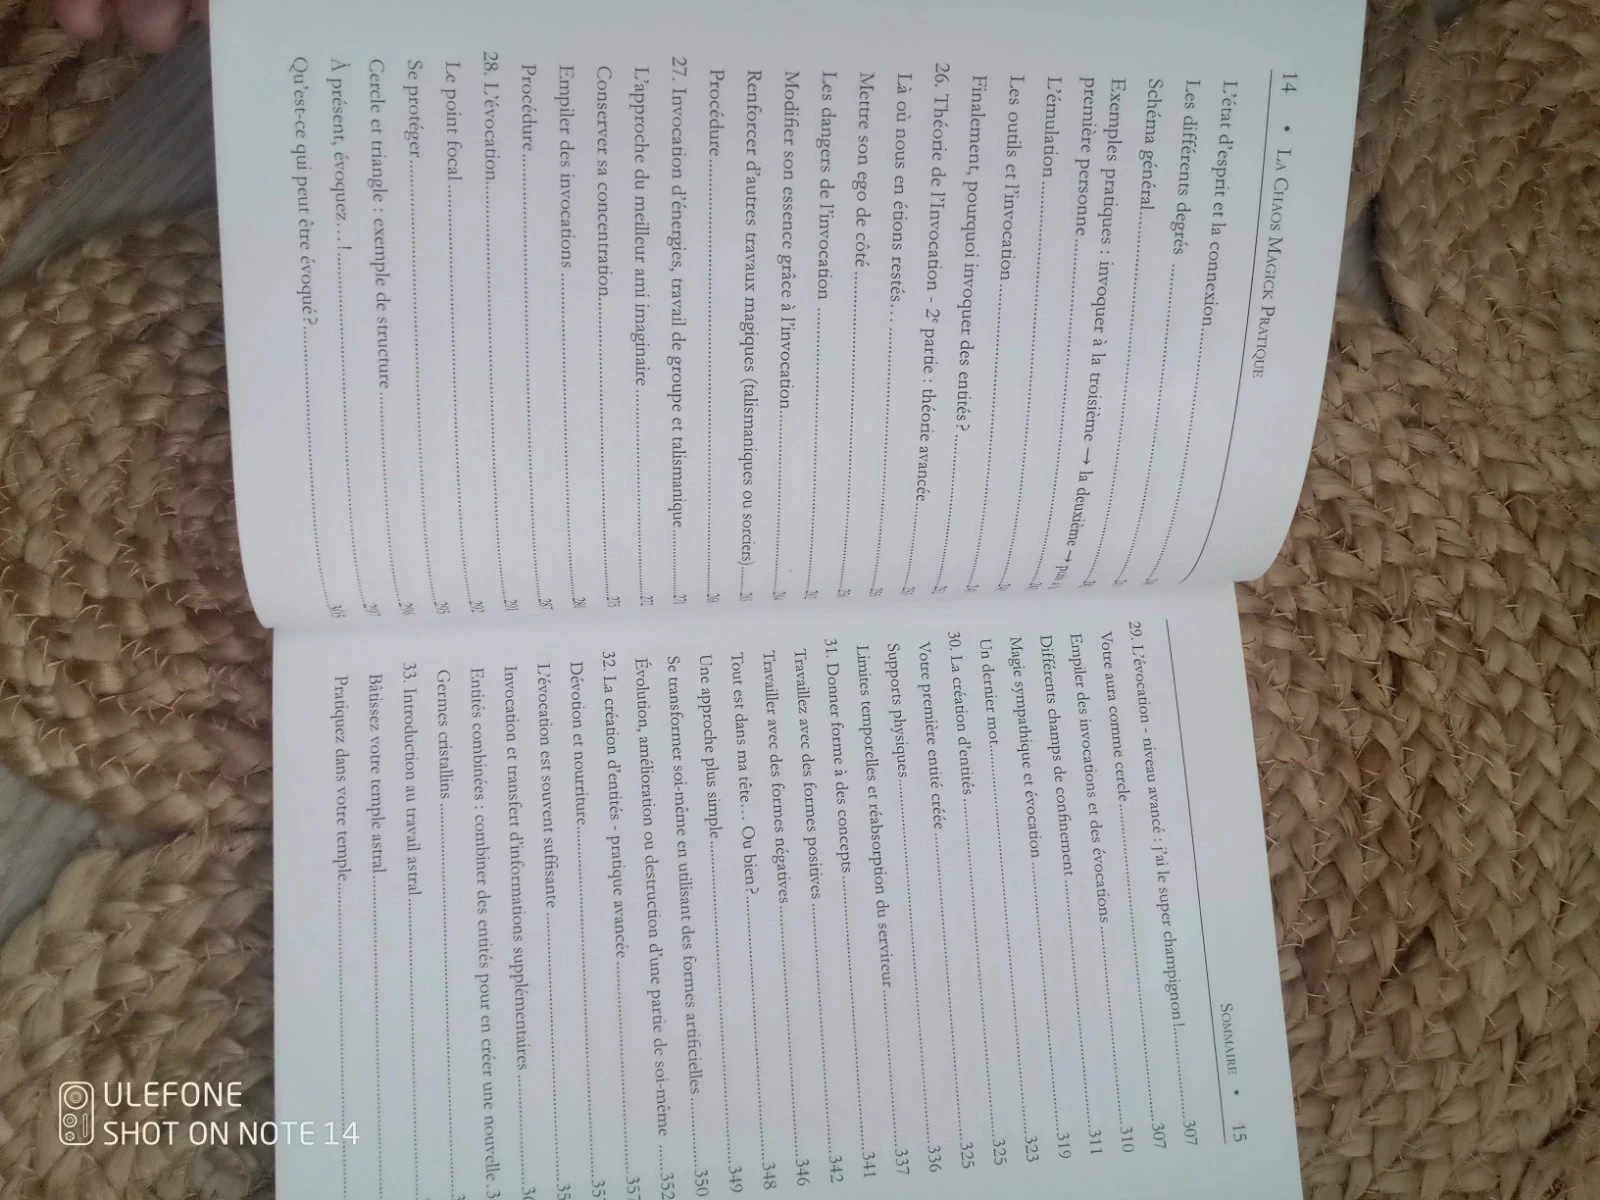 14 • LA CHAOS MAGICK PRATIQUE
L'état d'esprit et la connexion
Les différents degrés
Schéma général
Exemples pratiques : invoquer à la troisième → la deuxième → puis
première personne
L'émulation
Les outils et l'invocation
Finalement, pourquoi invoquer des entités ?
26. Théorie de l'Invocation - 2e partie : théorie avancée
Là où nous en étions restés…
Mettre son ego de côté
Les dangers de l'invocation
Modifier son essence grâce à l'invocation
Renforcer d'autres travaux magiques (talismaniques ou sorciers)
Procédure
27. Invocation d'énergies, travail de groupe et talismanique 271
L'approche du meilleur ami imaginaire 272
Conserver sa concentration 275
Empiler des invocations 280
Procédure 287
28. L'évocation 291
Le point focal 292
Se protéger 295
Cercle et triangle : exemple de structure 296
À présent, évoquez…! 297
Qu'est-ce qui peut être évoqué ? 305
SOMMAIRE • 15
29. L'évocation - niveau avancé : j'ai le super champignon ! 307
Votre aura comme cercle 307
Empiler des invocations et des évocations 310
Différents champs de confinement 311
Magie sympathique et évocation 319
Un dernier mot 323
30. La création d'entités 325
Votre première entité créée 325
Supports physiques 336
Limites temporelles et réabsorption du serviteur 337
31. Donner forme à des concepts 341
Travaillez avec des formes positives 342
Travailler avec des formes négatives 346
Tout est dans ma tête… Ou bien ? 348
Une approche plus simple 349
Se transformer soi-même en utilisant des formes artificielles 350
Évolution, amélioration ou destruction d'une partie de soi-même 352
32. La création d'entités - pratique avancée 357
Dévotion et nourriture
L'évocation est souvent suffisante
Invocation et transfert d'informations supplémentaires
Entités combinées : combiner des entités pour en créer une nouvelle
Germes cristallins
33. Introduction au travail astral
Bâtissez votre temple astral
Pratiquez dans votre temple
ULEFONE
SHOT ON NOTE 14